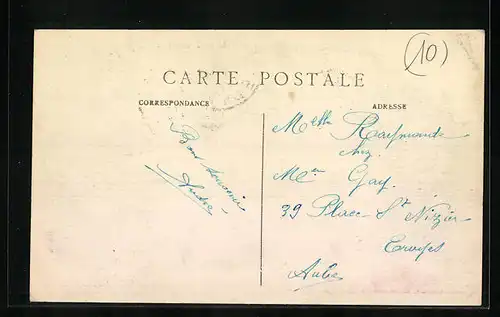 (10)
CARTE POSTALE
CORRESPONDANCE
ADRESSE
Bons souvenirs
André
Melle Raymonde
chez
Gay.
39 Place St Nizier
Troyes
Aube